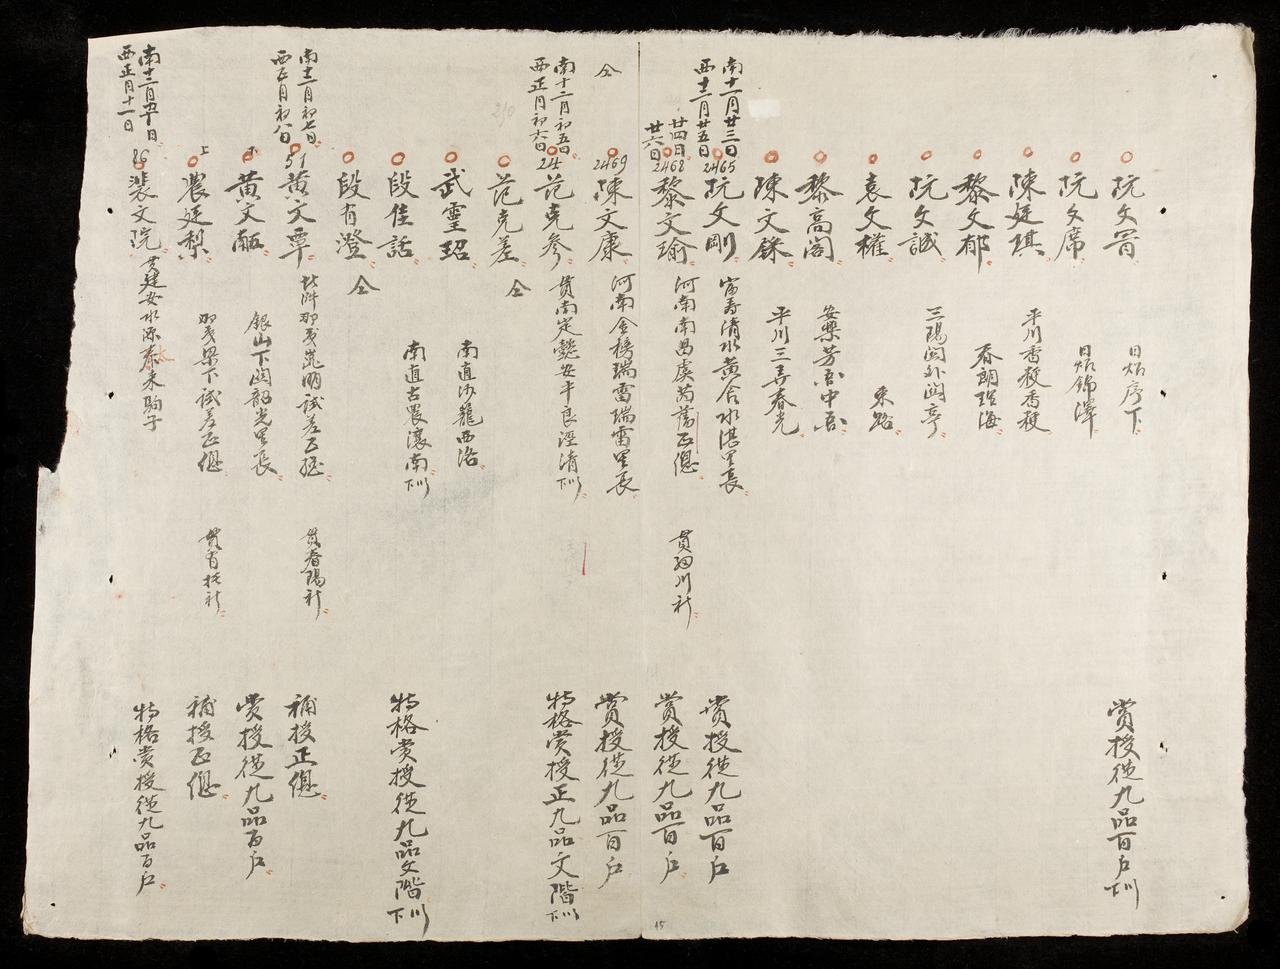 阮文胥 日炤序下 賞授從九品百戶
阮文席 日炤錦澤
陳廷琪 平川香粳香粳
黎文郁 春朗瑶海
阮文誠 三陽閣外閣亭
袁文權 東路
黎高閣 安樂芳吾中吾
陳文銖 平川三弄春光
南十一月廿三日
西十二月廿五日
2465
阮文剛 富壽清水黃舍水湛里長 賞授從九品百戶
廿四日
廿六日
2468
黎文瑜 河南南昌虞芮舊正總 貫 川社 賞授從九品百戶
仝
2469
陳文康 河南金榜瑞雷瑞雷里長 賞授從九品百戶
南十二月初五日
西正月初六日
24
范克參 貫南定懿安平良涇清 特格賞授正九品文階
范克差 仝
武靈玿 南直沙籠西洛
段佳話 南直古農瀼南 特格賞授從九品文階
段有澄 仝
南十二月初七日
西正月初八日
51
黃文覃 試差正總 貫春陽社 補授正總
下
黃文 銀山下閣韶光里長 賞授從九品百戶
上
農廷梨 梁下試差正總 貫百 社 補授正總
南十二月初十日
西正月十一日
86
裴文院 安水源泰來駒子 特格賞授從九品百戶
45